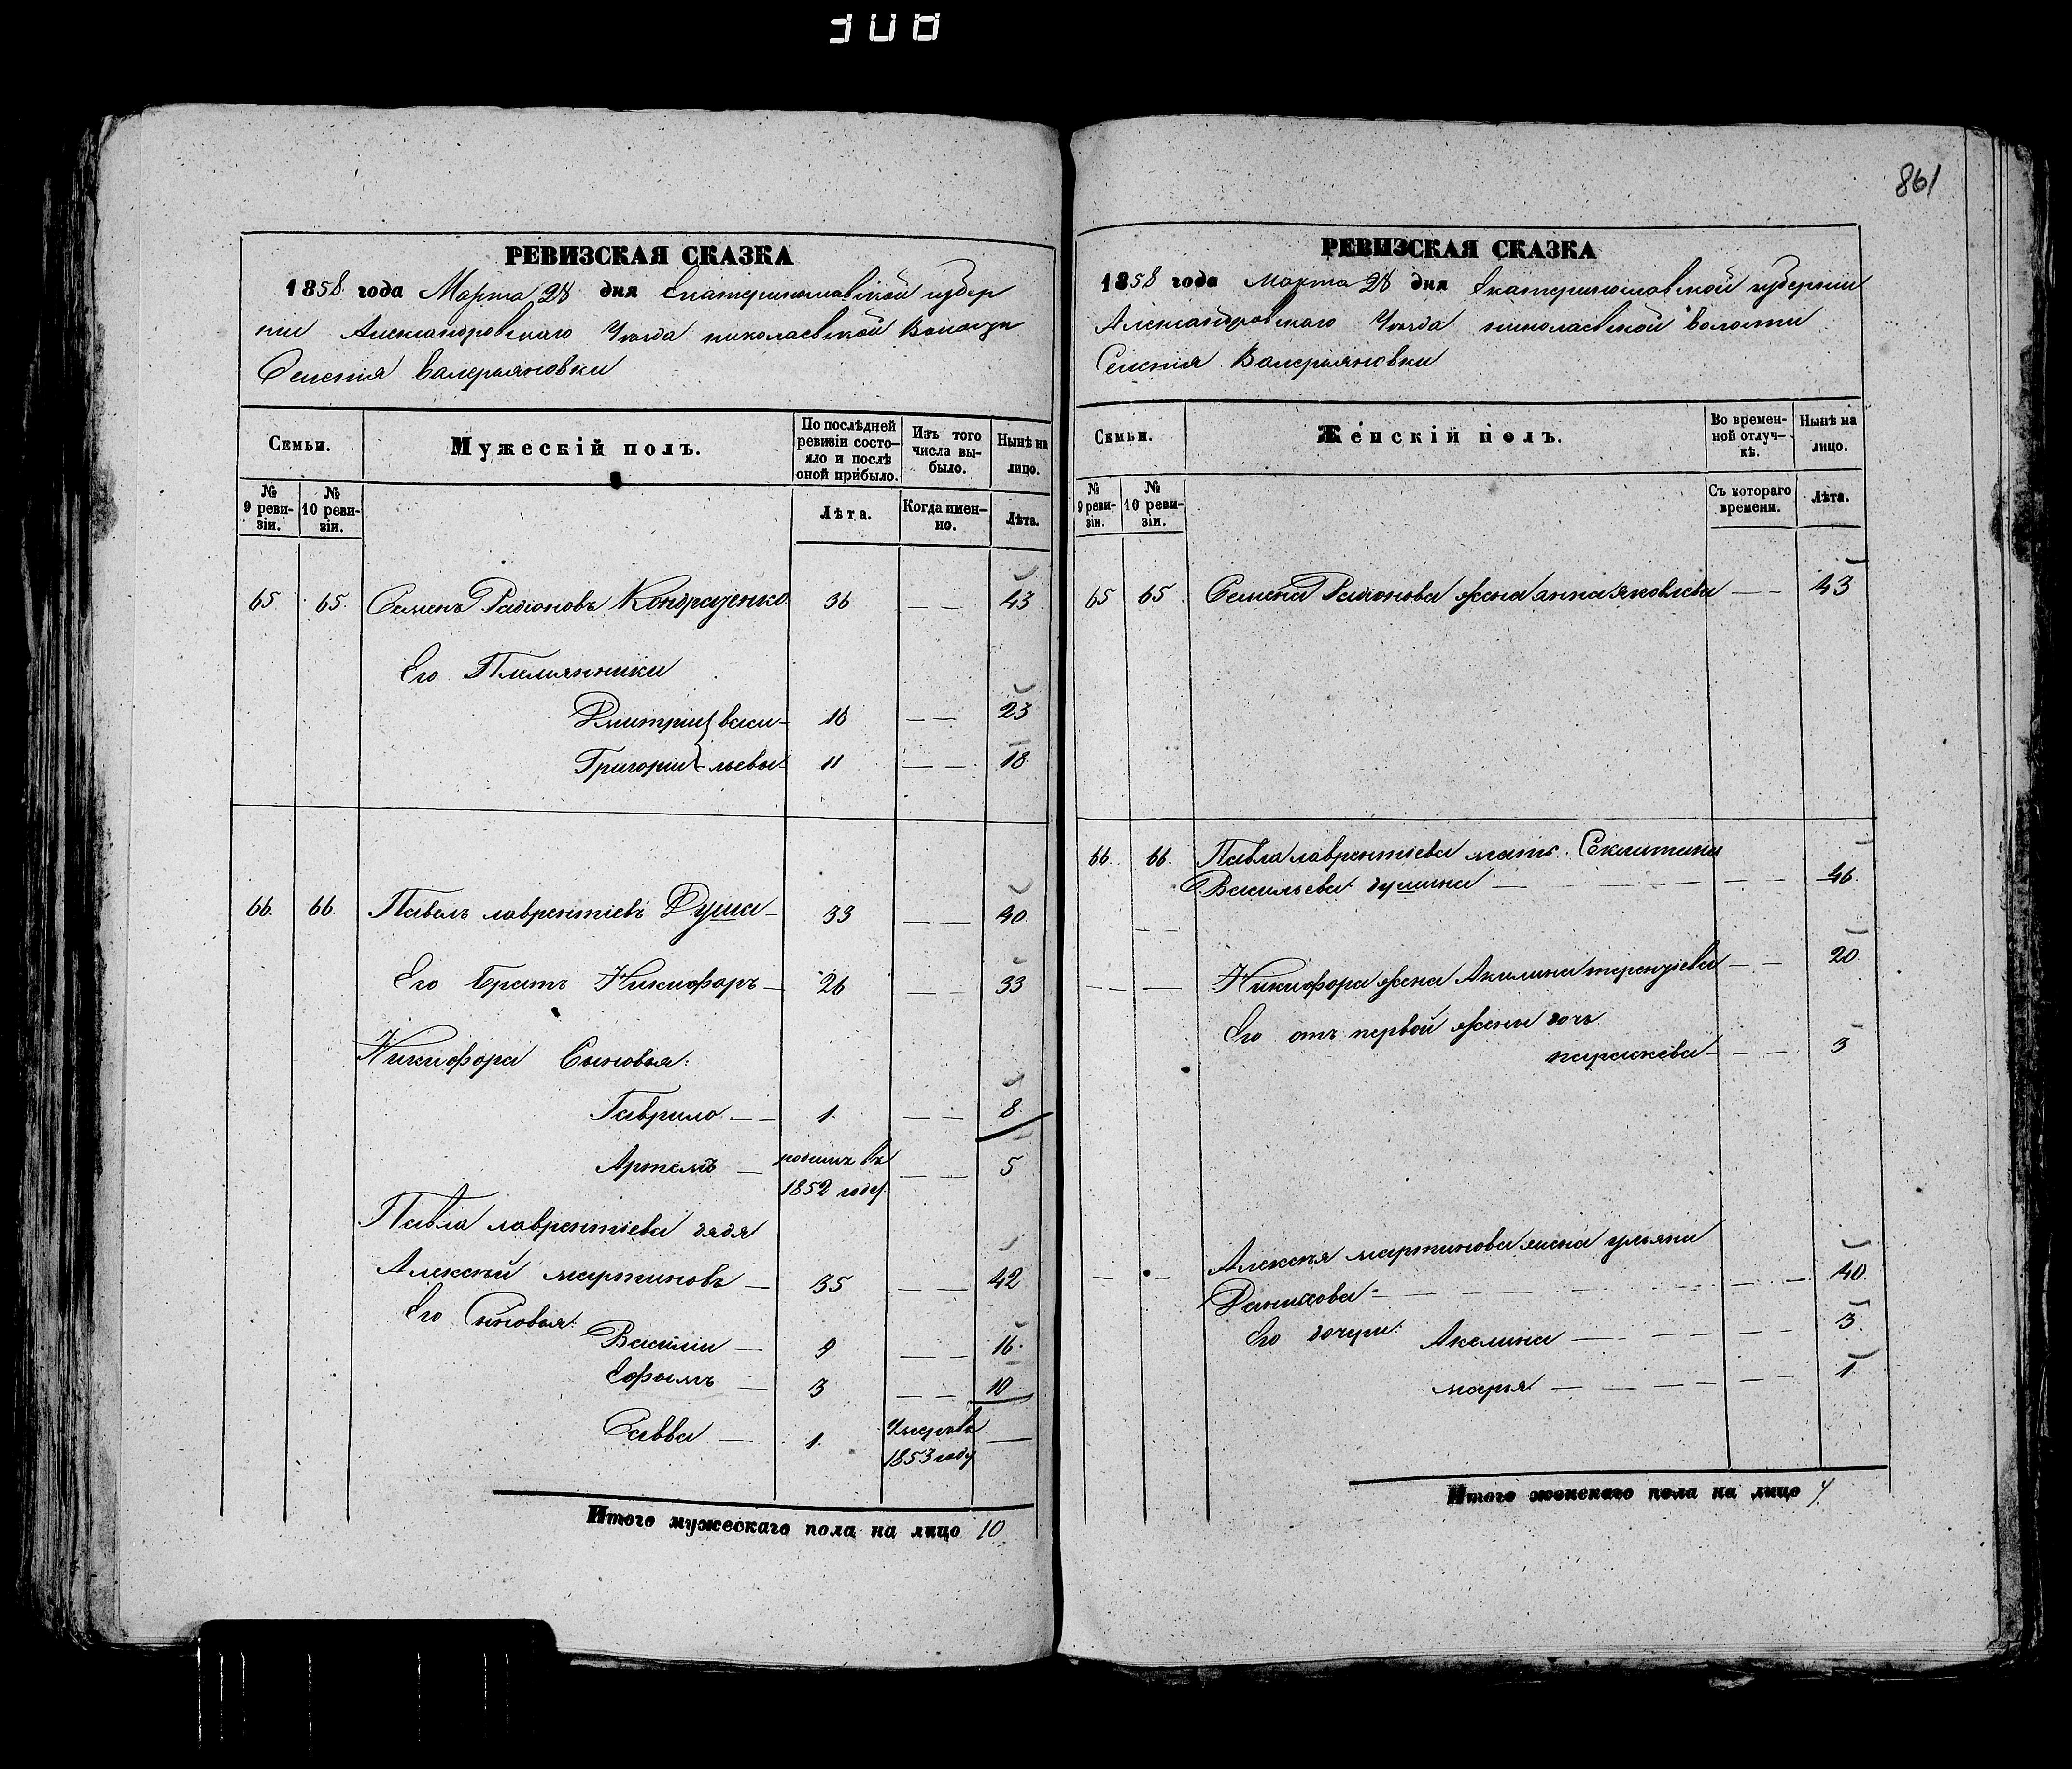 308
861
РЕВИЗСКАЯ СКАЗКА
1858 года Марта 28 дня Екатеринославской губер
нии Александровскаго Уезда николаевской Волости
Селения валерьяновки
Семьи.
Мужескій полъ.
По послѣдней ревизіи состо-яло и послѣ оной прибыло.
Изъ того числа вы-было.
Нынѣ на лицо.
№ 9 реви-зіи.
№ 10 реви-зіи.
Лѣта.
Когда имен-но.
Лѣта.
65 65. Семенъ Радіоновъ Кондратенко. 36 — — 43
Его Племянники
Дмитрии } васи- 16 — — 23
Григории } льевы- 11 — — 18
66. 66. Павелъ лаврентіевъ Душа — 33 — — 40.
Его братъ Никифоръ — 26 — — 33
Никифора Сыновья:
Гаврило — — 1. — — 8.
Артемъ — родилъ въ 1852 году — 5
Павла лаврентіева дядя
Алексѣй мартиновъ — 35 — — 42
Его Сыновья:
Василии — 9 — — 16.
Ефымъ — 3 — — 10
Савва — 1. Умеръ въ 1853 году —
Итого мужескаго пола на лицо 10
РЕВИЗСКАЯ СКАЗКА
1858 года Марта 28 дня Екатеринославской губернии
Александровскаго Уезда николаевской волости
Селения Валерьяновки
Семьи.
Женскій полъ.
Во времен-ной отлуч-кѣ.
Нынѣ на лицо.
№ 9 реви-зіи.
№ 10 реви-зіи.
Съ котораго времени.
Лѣта.
65 65 Семена Радіонова жена анна яковлева — — 43
66. 66. Павла лаврентіева мать
Васильева душина — — — 46.
Никифора жена Акилина терентіева — — 20
Его отъ первой жены дочь
параскева — — — 3
Алексѣя мартинова жена ульяна
Данилова — — — 40.
Его дочери: Акелина — — — 3.
марья — — — 1
Итого женскаго пола на лицо 7.